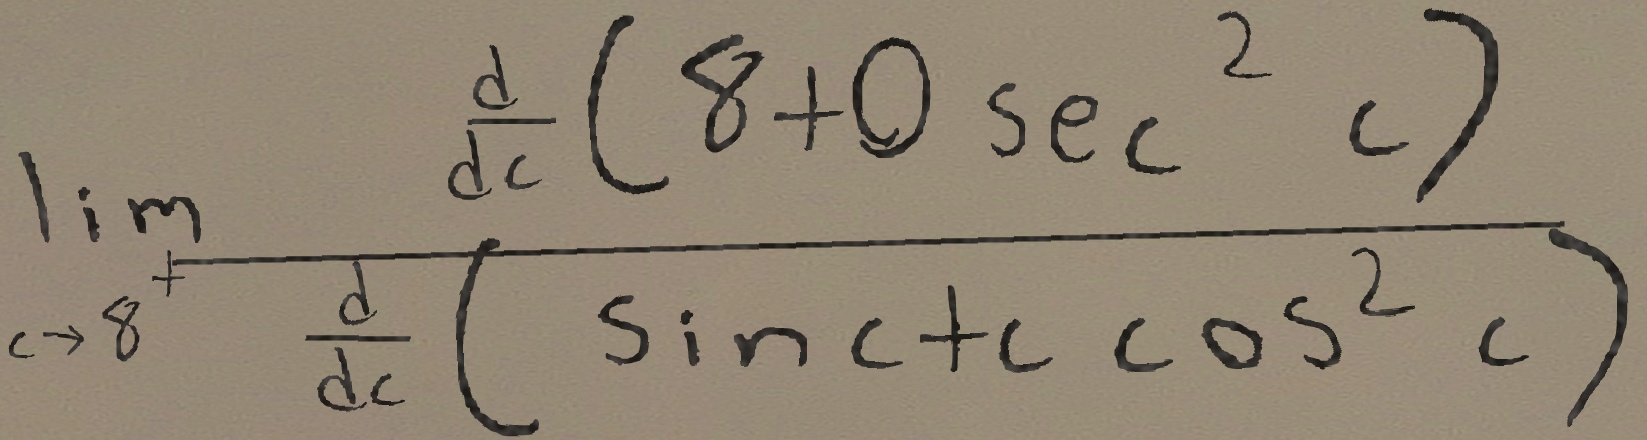 \lim_{c \to 8^+} \frac{\frac{d}{dc}(8+0 \sec^2 c)}{\frac{d}{dc}(\sin c+c \cos^2 c)}